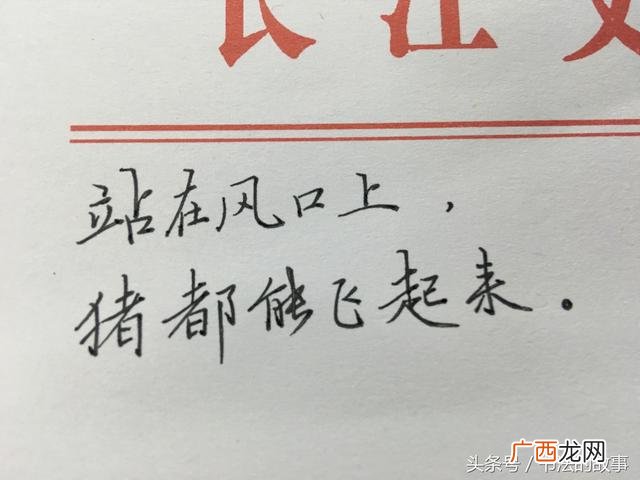 长江文
站在风口上，
猪都能飞起来。
广西龙网
头条号／书法的故事